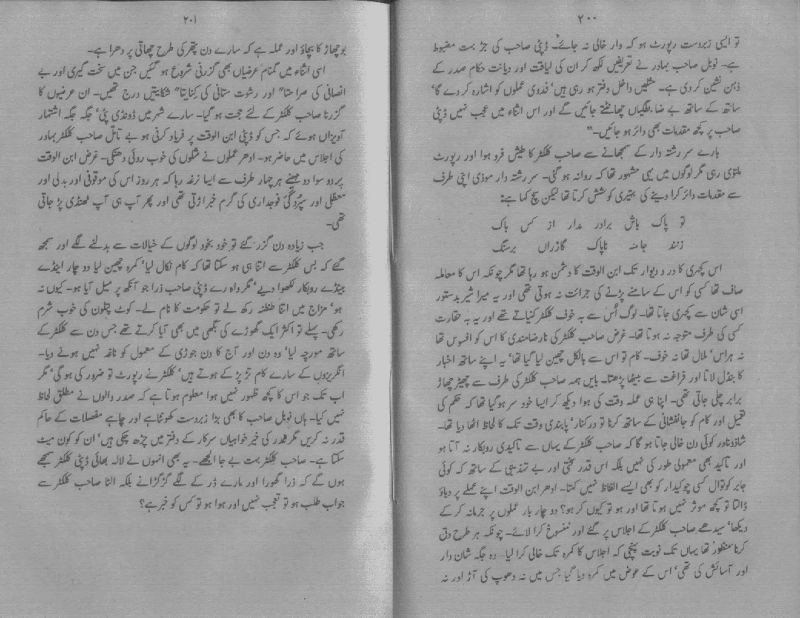 ۲۰۰
تو ایسی زبردست رپورٹ ہو کہ وار خالی نہ جائے۔ ڈپٹی صاحب کی جڑ بہت مضبوط
ہے۔ نوبل صاحب بہادر نے تعریفیں لکھ کر ان کی لیاقت اور دیانت حکام صدر کے
ذہن نشین کر دی ہے۔ مثلیں داخل دفتر ہو رہی ہیں' فدوی عملوں کو اشارہ کر دے گا'
ساتھ کے ساتھ بے ضابطگیاں چھانٹتے جائیں گے اور اس اثناء میں عجب نہیں ڈپٹی
صاحب پر کچھ مقدمات بھی دائر ہو جائیں۔"
بارے سر رشتہ دار کے سمجھانے سے صاحب کلکٹر کا طیش فرو ہوا اور رپورٹ
ملتوی رہی مگر لوگوں میں یہی مشہور تھا کہ روانہ ہو گئی۔ سر رشتہ دار موذی اپنی طرف
سے مقدمات دائر کرا دینے کی بہتیری کوشش کرتا تھا لیکن سچ کہا ہے:
تو پاک باش برادر مدار از کس باک
زنند جامہ ناپاک گازراں برسنگ
اس کچہری کا در و دیوار تک ابن الوقت کا دشمن ہو رہا تھا مگر چونکہ اس کا معاملہ
صاف تھا کسی کو اس کے سامنے پڑنے کی جرات نہ ہوتی تھی اور یہ میرا شیر بدستور
اسی شان سے کچہری جاتا تھا۔ لوگ اُس سے بہ خوف کلکٹر کنیاتے تھے اور یہ بہ حقارت
کسی کی طرف متوجہ نہ ہوتا تھا۔ غرض صاحب کلکٹر کی نارضامندی کا اس کو افسوس تھا
نہ ہراس' ملال تھا نہ خوف۔ کام تو اس سے بالکل چھین لیا گیا تھا' یہ اپنے ساتھ اخبار
کا بنڈل لاتا اور فراغت سے بیٹھا پڑھتا۔ بایں ہمہ صاحب کلکٹر کی طرف سے چھیڑ چھاڑ
برابر چلی جاتی تھی۔ اپنا ہی عملہ وقت کی ہوا دیکھ کر ایسا خود سر ہو گیا تھا کہ حکم کی
تعمیل اور کام کو جانفشانی کے ساتھ کرنا تو درکنار' پابندی وقت تک کا لحاظ اٹھا دیا تھا۔
شاذونادر کوئی دن خالی جاتا ہو گا کہ صاحب کلکٹر کے یہاں سے تاکیدی روبکار نہ آتا ہو
اور تاکید بھی معمولی طور کی نہیں بلکہ اس قدر سختی اور بے تہذیبی کے ساتھ کہ کوئی
جابر کوتوال کسی چوکیدار کو بھی ایسے الفاظ نہیں لکھتا۔ اودھر ابن الوقت اپنے عملے پر دباؤ
ڈالتا تو کچھ موثر نہیں ہوتا تھا اور ہو تو کیوں کر ہو؟ دو چار بار عملوں پر جرمانہ کر کے
دیکھا' سیدھے صاحب کلکٹر کے اجلاس پر گئے اور منسوخ کرا لائے۔ چونکہ ہر طرح دق
کرنا منظور تھا یہاں تک نوبت پہنچی کہ اجلاس کا کمرہ تک خالی کرا لیا۔ وہ جگہ شان دار
اور آسائش کی تھی' اس کے عوض میں کمرہ دیا گیا جس میں نہ دھوپ کی آڑ اور نہ
۲۰۱
بوچھاڑ کا بچاؤ اور عملہ ہے کہ سارے دن پتھر کی طرح چھاتی پر دھرا ہے۔
اسی اثناء میں گمنام عرضیاں بھی گزرنی شروع ہو گئیں جن میں سخت گیری اور بے
انصافی کی صراحتاً اور رشوت ستانی کی کنایتاً شکایتیں درج تھیں۔ ان عرضیوں کا
گزرنا صاحب کلکٹر کے لئے حجت ہو گیا۔ سارے شہر میں ڈونڈی پٹی' جگہ جگہ اشتہار
آویزاں ہوئے کہ جس کو ڈپٹی ابن الوقت پر فریاد کرنی ہو بے تامل صاحب کلکٹر بہادر
کی اجلاس میں حاضر ہو۔ ادھر عملوں نے مثلوں کی خوب روئی دھنکی۔ غرض ابن الوقت
پر دو سوا دو مہینے ہر چہار طرف سے ایسا نرغہ رہا کہ ہر روز اس کی موقوفی اور بدلی اور
معطلی اور سپردگی فوجداری کی گرم خبر اڑتی تھی اور پھر آپ ہی آپ ٹھنڈی پڑ جاتی
تھی۔
جب زیادہ دن گزر گئے تو خود بخود لوگوں کے خیالات سے بدلنے لگے اور سمجھ
گئے کہ بس کلکٹر سے اتنا ہی ہو سکتا تھا کہ کام نکال لیا' کمرہ چھین لیا دو چار اینڈے
بینڈے روبکار لکھوا دیے' مگر واہ رے ڈپٹی صاحب ذرا جو آنکھ پر میل آیا ہو۔ کیوں نہ
ہو' مزاج میں اتنا طنطنہ رکھ لے تو حکومت کا نام لے۔ کوٹ پتلون کی خوب شرم
رکھی۔ پہلے تو اکثر ایک گھوڑے کی بگھی میں بھی آیا کرتے تھے جس دن سے کلکٹر کے
ساتھ مورچہ لیا' وہ دن اور آج کا دن جوڑی کے معمول کو ناغہ نہیں ہونے دیا۔
انگریزوں کے سارے کام تڑپڑ کے ہوتے ہیں' کلکٹر نے رپورٹ تو ضرور کی ہو گی' مگر
اب تک جو اس کا کچھ ظہور نہیں ہوا معلوم ہوتا ہے کہ صدر والوں نے مطلق لحاظ
نہیں کیا۔ ہاں نوبل صاحب کا بھی بڑا زبردست کھونٹا ہے اور چاہے مفصلات کے حاکم
قدر نہ کریں مگر غدر کی خیر خواہیاں سرکار کے دفتر میں چڑھ چکی ہیں' ان کو کون میٹ
سکتا ہے۔ صاحب کلکٹر بہت بے جا الجھے۔ یہ بھی انہوں نے لالہ بھائی ڈپٹی کلکٹر سمجھے
ہوں گے کہ ذرا گھورا اور مارے ڈر کے لگے گڑگڑانے بلکہ الٹا صاحب کلکٹر سے
جواب طلب ہو تو تعجب نہیں اور ہوا ہو تو کس کو خبر ہے؟